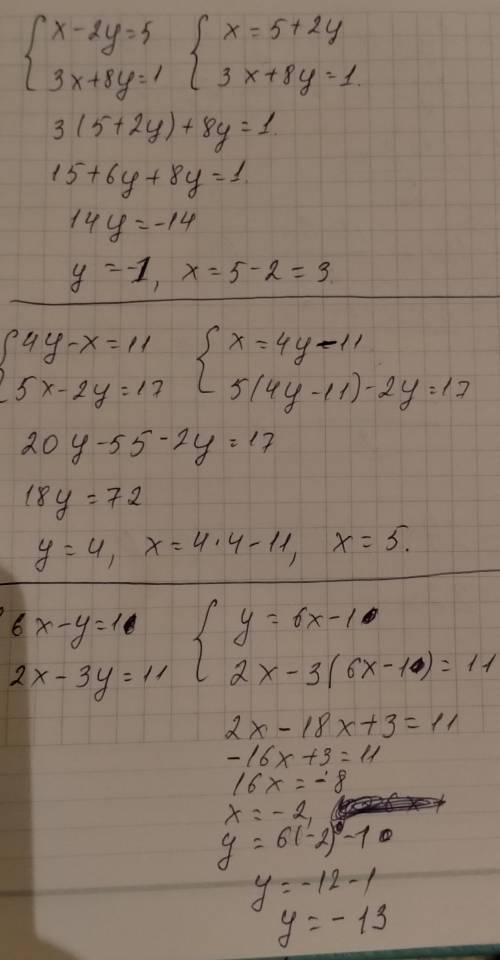 x-2y=5   x=5+2y
3x+8y=1   3x+8y=1.
3(5+2y)+8y=1.
15+6y+8y=1.
14y=-14
y=-1, x=5-2=3.
4y-x=11   x=4y-11
5x-2y=17   5(4y-11)-2y=17
20y-55-2y=17
18y=72
y=4, x=4·4-11, x=5.
6x-y=1   y=6x-1
2x-3y=11   2x-3(6x-1)=11
2x-18x+3=11
-16x+3=11
16x=-8
x=-2,
y=6(-2)-1
y=-12-1
y=-13